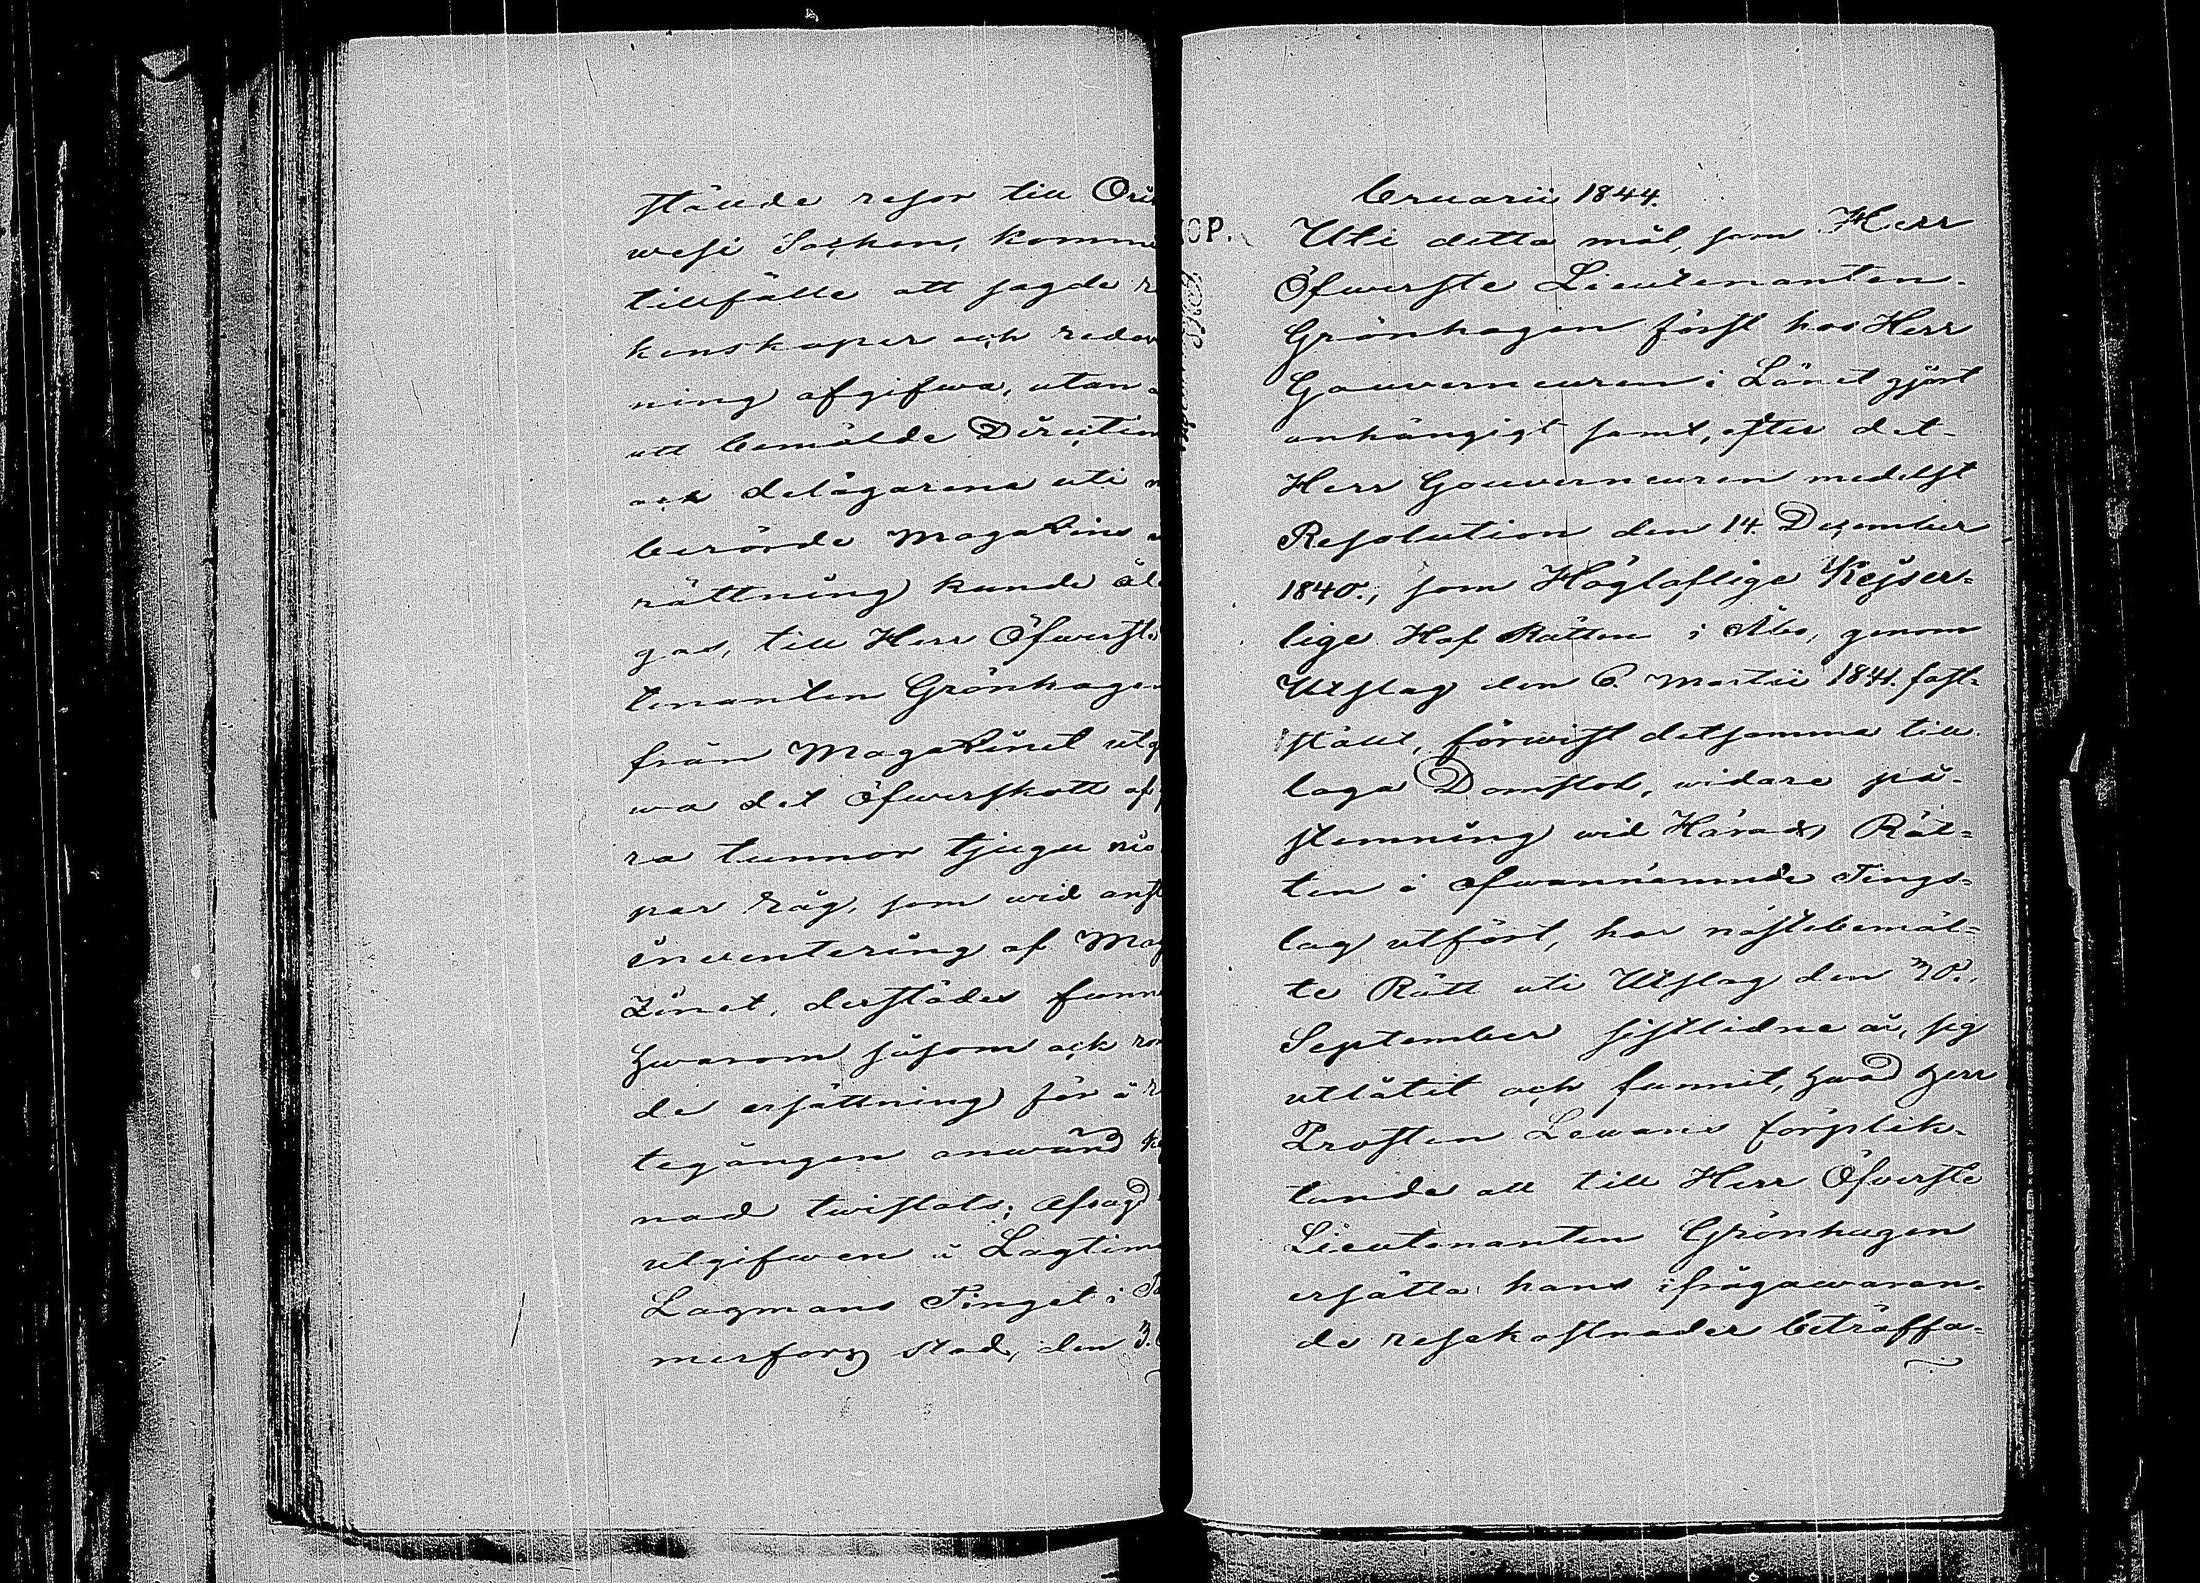 stälde resor till Ori
wesi Sochen, komme
tillfälle att sagde r
kenskaper och redov
ning afgifwa, utan
att bemälde Direction
och delägarena uti
berörde Magazins
rättning kunde
gas, till Herr Öfwerste
tenanten Grönhagen
från Magazinet utg
wa det Öfwerskott af
ra tunnor tjugu nio
par råg, som wid anst
inventering af Mag
zinet, derstädes funn
hwarom såsom ock
de ersättning för ä
tegången anwänd
nad twistats; Afsagd
utgifwen å Lagtima
Lagmans Tinget i Ta
merfors stad, den 3.
bruarii 1844.
OP.
Uti detta mål, som Herr
Öfwerste Lieutenanten
Grönhagen först hos Herr
Gouverneuren i Länet gjort
anhängigt samt, efter det
Herr Gouverneuren medelst
Resolution den 14. December
1840., som Högloflige Kejser=
lige Hof Rätten i Åbo, genom
Utslag den 6. Martii 1841. fast=
stält, förwist detsamma till
laga Domstol, widare på
stemning wid Härads Rät=
ten i ofwannämnde Tings=
lag utfört, har nästbemäl=
te Rätt uti Utslag den 30.
September sistlidne år, sig
utlåtit och funnit, hwad Herr
Prosten Lewans förplik=
tande att till Herr Öfwerste
Lieutenanten Grönhagen
ersätta hans ifrågawaran=
de resekostnader beträffa=